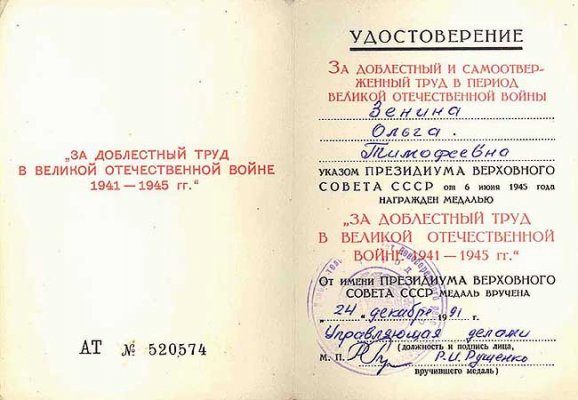 „ЗА ДОБЛЕСТНЫЙ ТРУД
В ВЕЛИКОЙ ОТЕЧЕСТВЕННОЙ ВОЙНЕ
1941—1945 гг.“
АТ № 520574
УДОСТОВЕРЕНИЕ
ЗА ДОБЛЕСТНЫЙ И САМООТВЕР-
ЖЕННЫЙ ТРУД В ПЕРИОД
ВЕЛИКОЙ ОТЕЧЕСТВЕННОЙ ВОЙНЫ
Зенина
Ольга
Тимофеевна
УКАЗОМ ПРЕЗИДИУМА ВЕРХОВНОГО
СОВЕТА СССР от 6 июня 1945 года
НАГРАЖДЕН МЕДАЛЬЮ
„ЗА ДОБЛЕСТНЫЙ ТРУД
В ВЕЛИКОЙ ОТЕЧЕСТВЕННОЙ
ВОЙНЕ 1941—1945 гг.“
От имени ПРЕЗИДИУМА ВЕРХОВНОГО
СОВЕТА СССР МЕДАЛЬ ВРУЧЕНА
„24“ декабря 1991 г.
Управляющая делами
(должность и подпись лица,
М. П. Р.И.Рущенко
вручившего медаль)